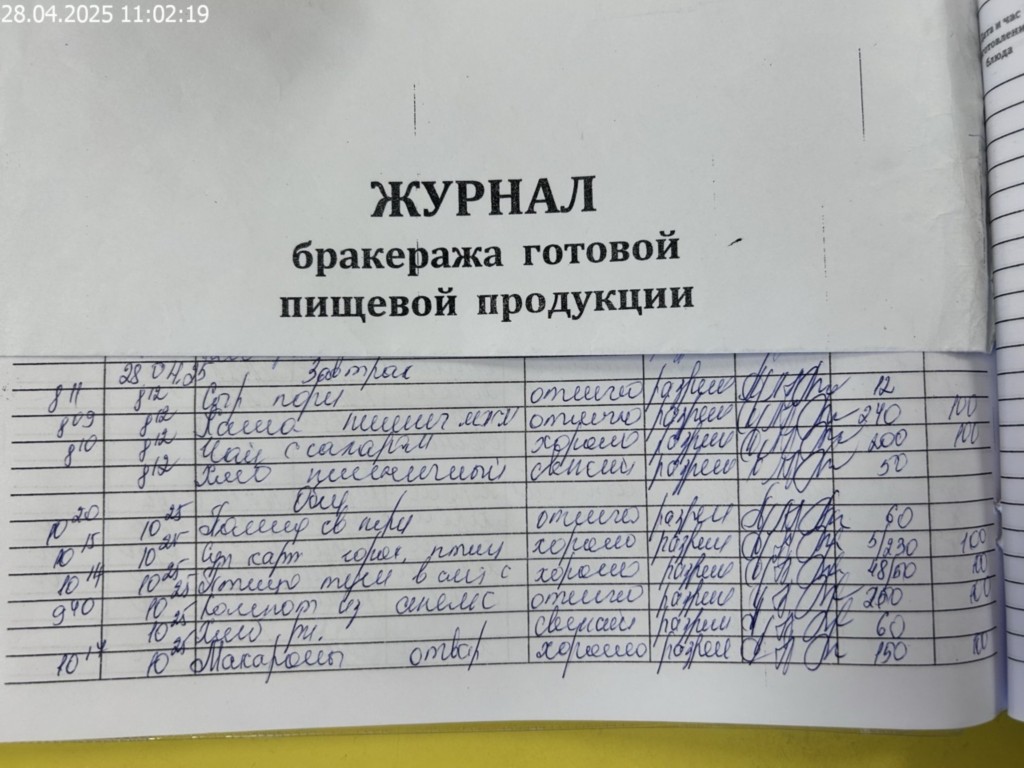 28.04.2025 11:02:19
дата и час
изготовления
блюда
ЖУРНАЛ
бракеража готовой
пищевой продукции
28.04.25 Завтрак
8 11 8 12 Сыр порц отлично разреш 12
8 09 8 12 Каша пшенич отлично разреш 240 100
8 10 8 12 Чай с сахаром хорошо разреш 200 100
8 12 Хлеб пшеничный свежий разреш 50
Обед
10 20 10 25 св отлично разреш 60
10 15 10 25 Суп карт горох. птиц хорошо разреш 5/230 100
10 14 10 25 туш в с хорошо разреш 48/60 100
9 40 10 25 Компот из отлично разреш 200
10 25 Хлеб рж. свежий разреш 60
10 17 10 25 Макароны отвар хорошо разреш 150 100